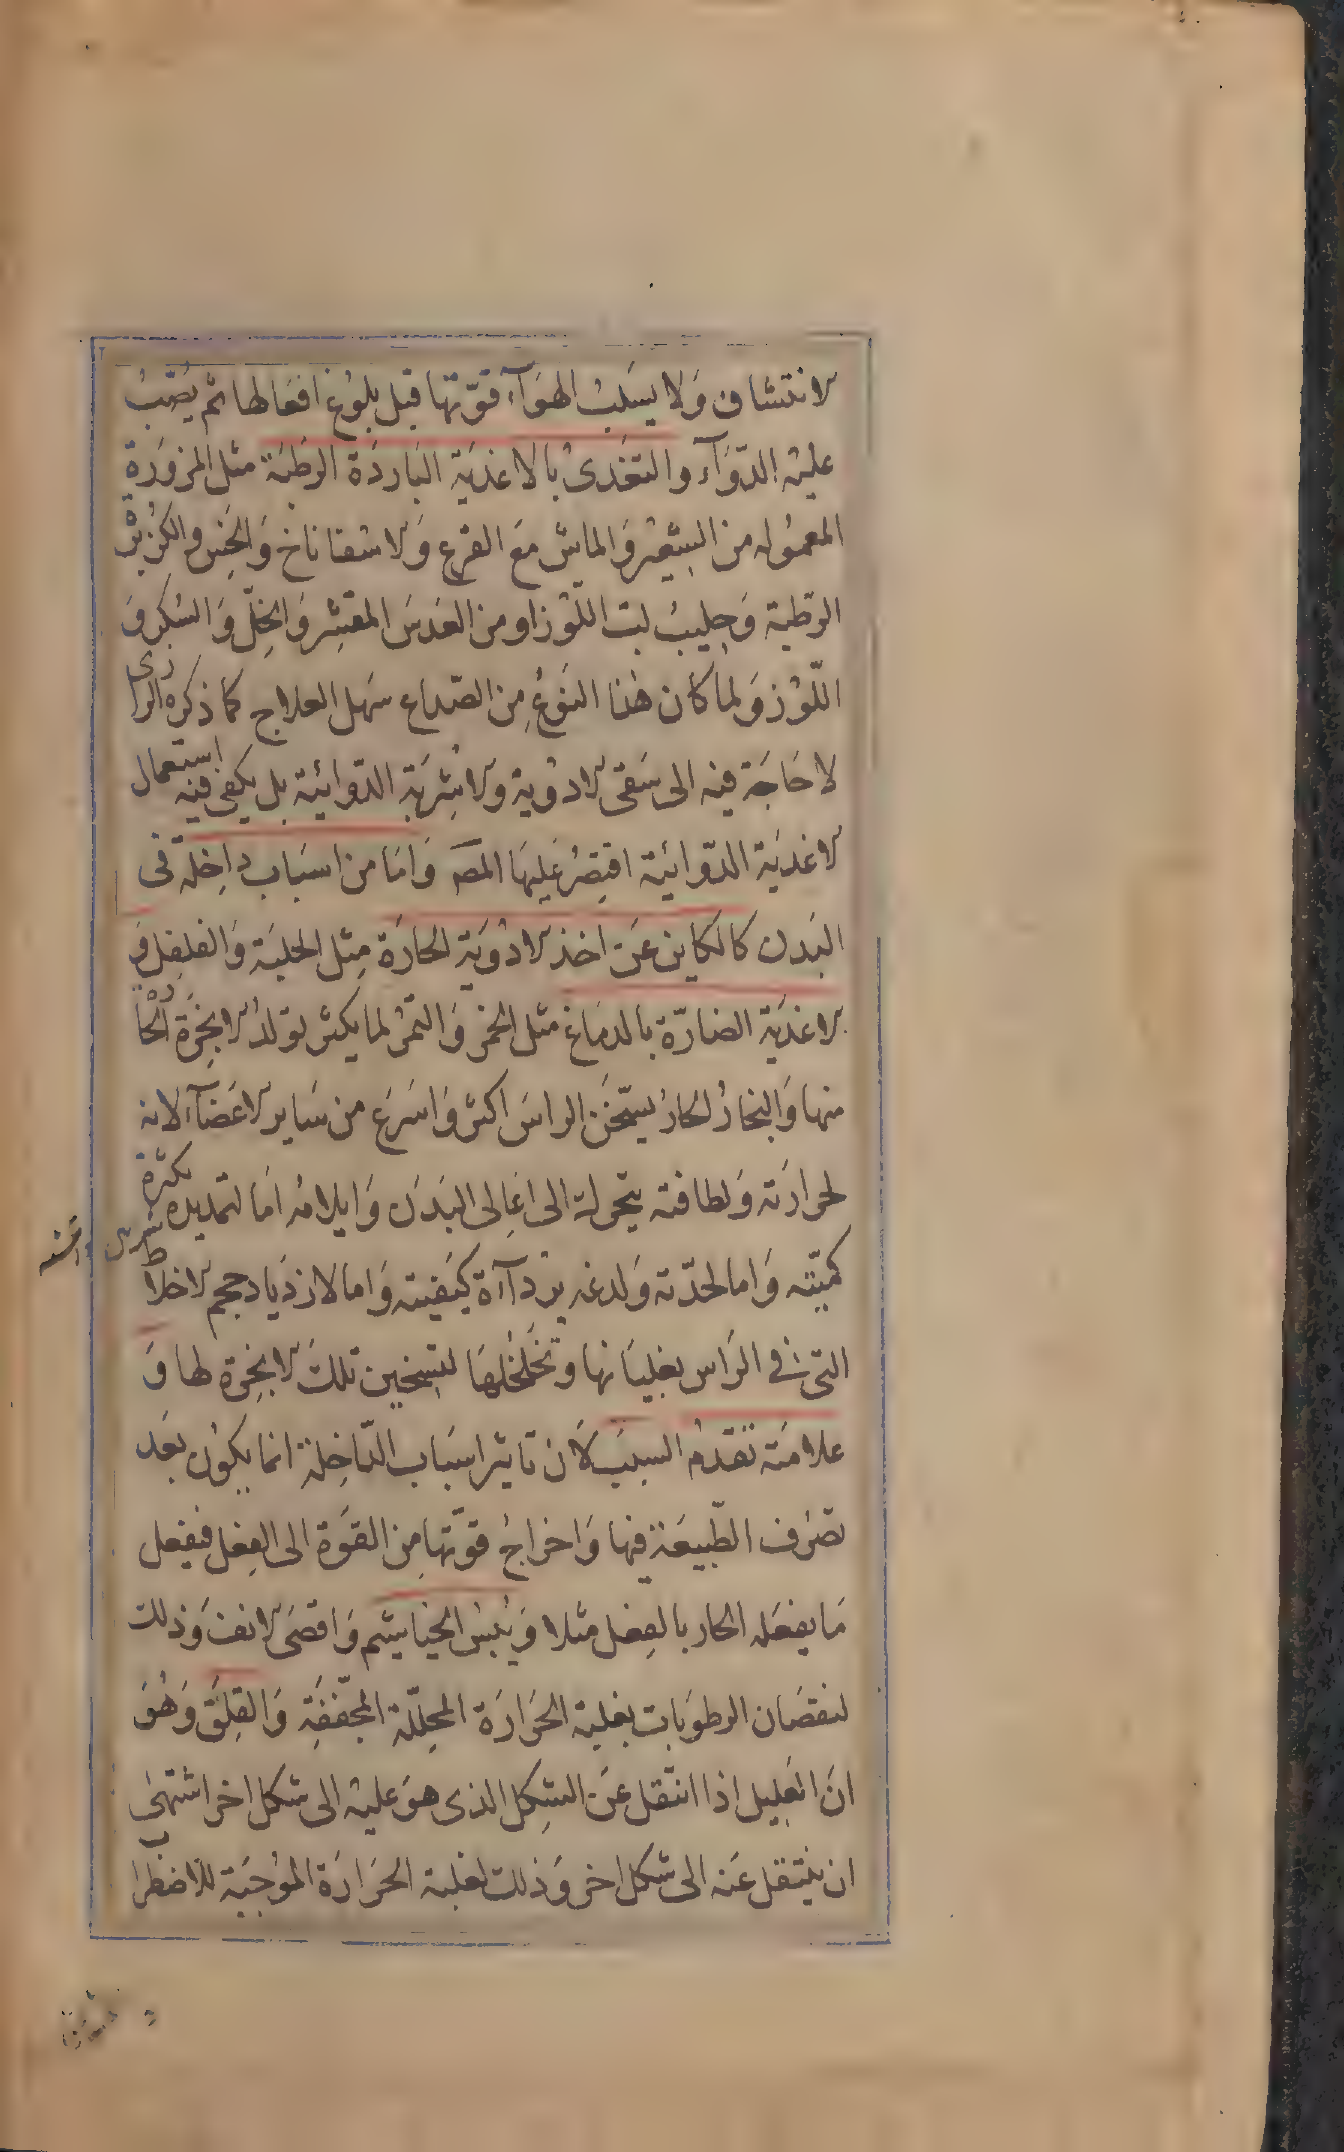 الانتشاف وَلا يسَلبُ الهوَآء قوّتها قبل بلوُغ افعَالها ثم يُصَبُّ
عليْه الدّوَآء والتغَدى بالاغذيَة البَاردَة الرطبَة مثل المزورَة
المعمُوله من الشعيْر وَالماش مَع القرع وَالاسفاناخ وَالخس والكزبرَة
الرّطبة وَحليبُ لبّ اللّوْز او من العَدسَ المقشِر وَالخِلّ وَالسُكر وَ
اللّوْز وَلما كان هٰذا النَوعُ مِن الصّداع سَهل العلاج كما ذكره الرازى
لا حَاجَة فيه الى سَقى الادْوية والاشِرَبَة الدّوائية بل يكفى فيه استعمال
الاغديَة الدّوائية اقتصُر عَليهَا المصَ وَامَا من اسبَاب داخِلة فى
البَدن كالكاين عَن اخذ الادْويَة الحارَة مِثل الحلبَة وَالفلفِل وَ
الاغذيَة الضارّة بالدمَاغ مثل الخمر وَالتمرُ لما يكثر تولدُ الابخِرَة الحَارة
منها وَالبخارُ الحَارُ يسَخّن الراسَ اكثر وَاسَرعَ من سَاير الاعَضآء لانه
لحرارَته وَلطافته يتحرك الى اعَالى البَدَن وَايلامُه امَا لتمديده بكثرة
كميّته وَاما لحدّته وَلدغه برداآءة كيَفيته وَاما لازدَياد حجم الاخلاط
التى فى الرَاس بغليَانها وتخَلخلهَا لتسَخين تلكَ الابخِرة لها وَ
علامَته تقدمُ السبب لاَن تاثير اسبَاب الدّاخِلة انما يكوُن بعَد
تصَرُف الطّبيعَة فيها وَاخراجُ قوَتها مِن القوَة الى الفِعل فيفعل
مَا يفعَله الحار بالفِعل مثلا وَيُبسُ الخياشيم وَاقصَى الانف وَذلك
لنقصَان الرطوبَات بغلبة الحَرارَة المحِلّلة المجَففَة وَالقلِقَ وَهُوَ
انَ العَليل اذا انتقل عَن الشِكل الذى هوَ عليْه الى شكل اخر اشتهى
ان ينتقل عَنه الى شكل اخر وَذلك لغلبة الحَرارَة الموُجبَة للاضطراب